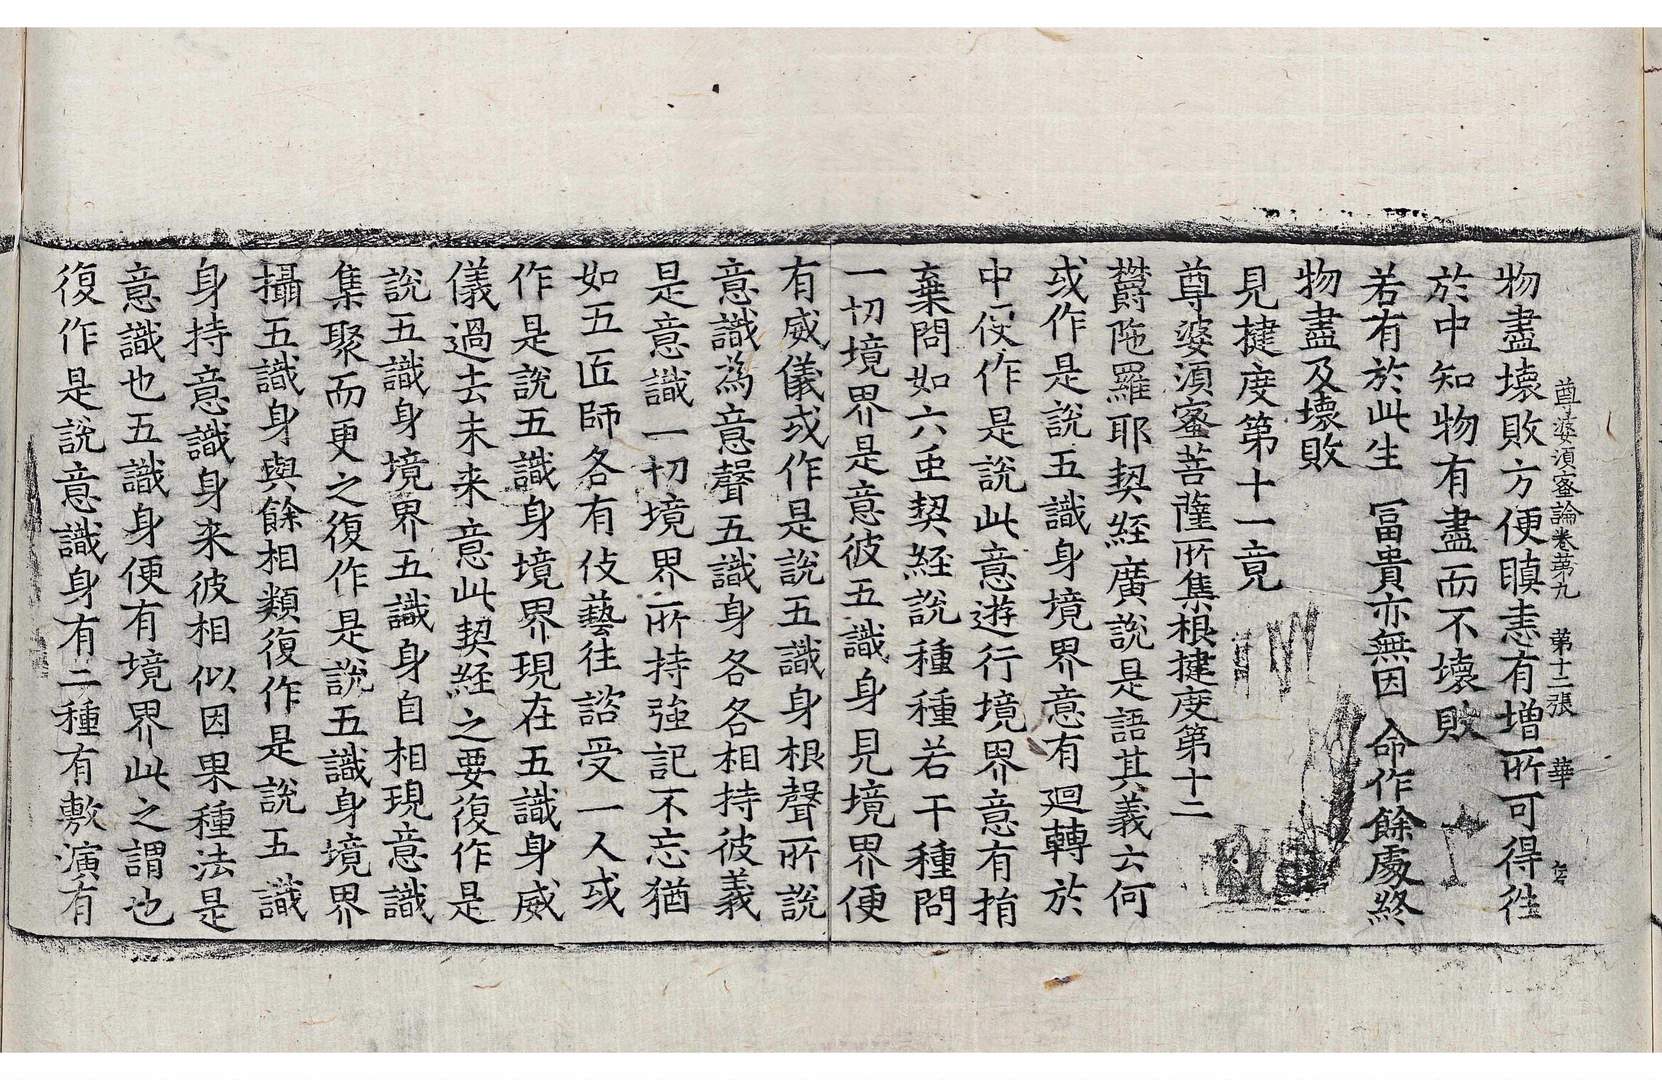 尊婆湏蜜論卷苐九　苐十二張　華
物盡壞敗方便瞋恚有增所可得往
於中知物有盡而不壞敗
若有於此生　冨貴亦無因　命作餘處終
物盡及壞敗
見揵度第十一竟
尊婆湏蜜菩薩所集根揵度第十二
欝陁羅耶契經廣說是語其義云何
或作是說五識身境界意有迴轉於
中伇作是說此意遊行境界意有捎
棄問如六䖝契經說種種若干種問
一切境界是意彼五識身見境界便
有威儀或作是說五識身根聲所說
意識為意聲五識身各各相持彼義
是意識一切境界所持強記不忘猶
如五匠師各有伎藝往諮受一人或
作是說五識身境界現在五識身威
儀過去未来意此契經之要復作是
說五識身境界五識身自相現意識
集聚而更之復作是說五識身境界
攝五識身與餘相類復作是說五識
身持意識身来彼相似因果種法是
意識也五識身便有境界此之謂也
復作是說意識身有二種有敷演有